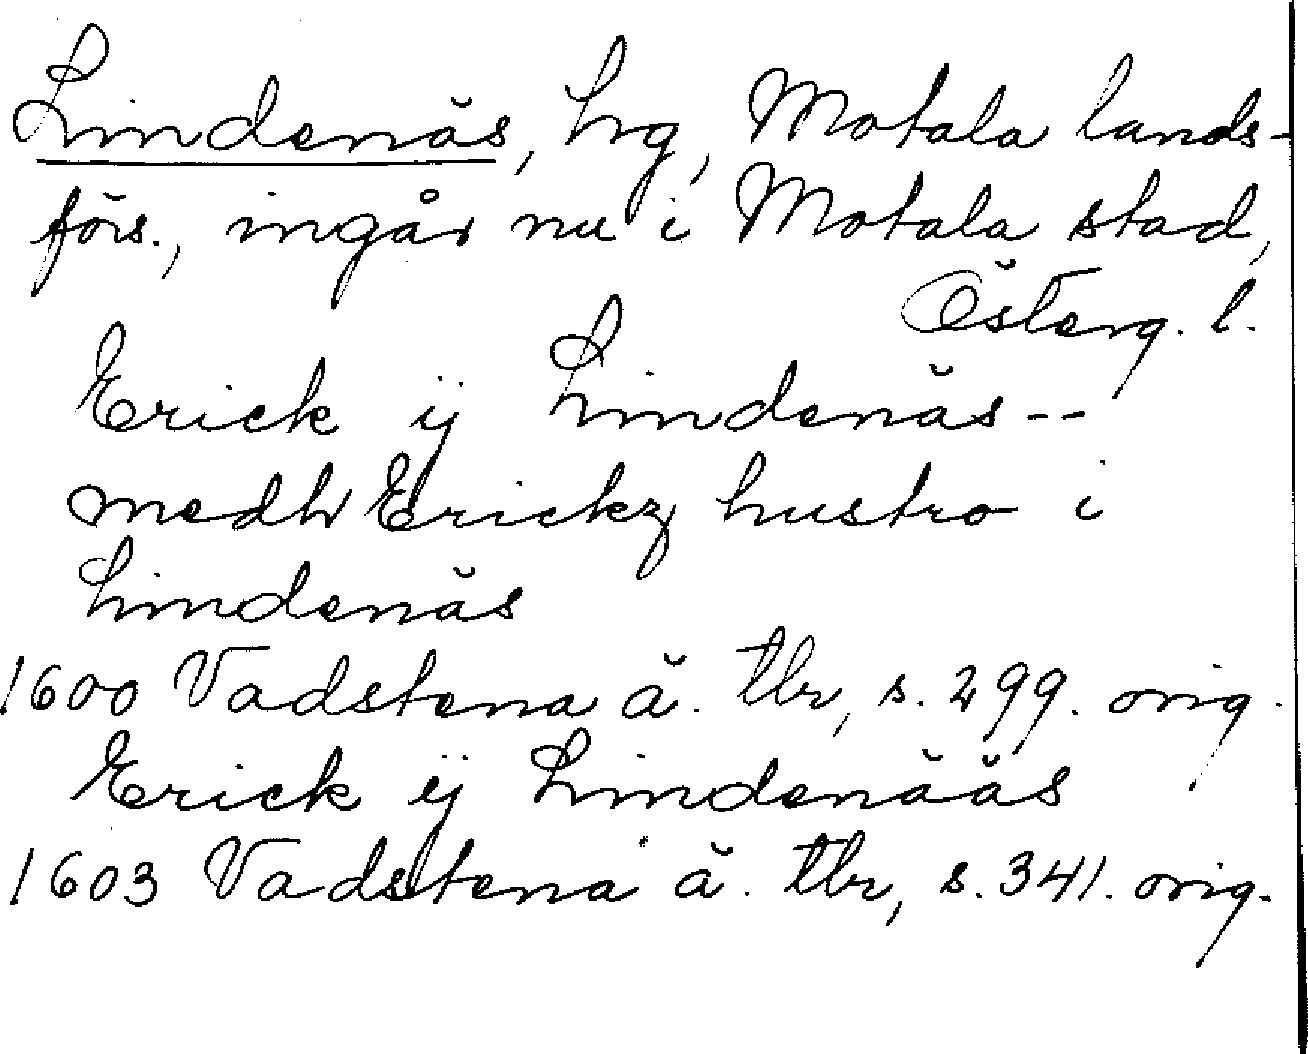 Lindenäs, hg, Motala lands-
förs., ingår nu i Motala stad,
Österg. l.
Erick ij Lindenäs--
medh Erickz hustro i
Lindenäs
1600 Vadstena ä. tbr, s. 299. orig.
Erick ij Lindenääs
1603 Vadstena ä. tbr, s. 341. orig.